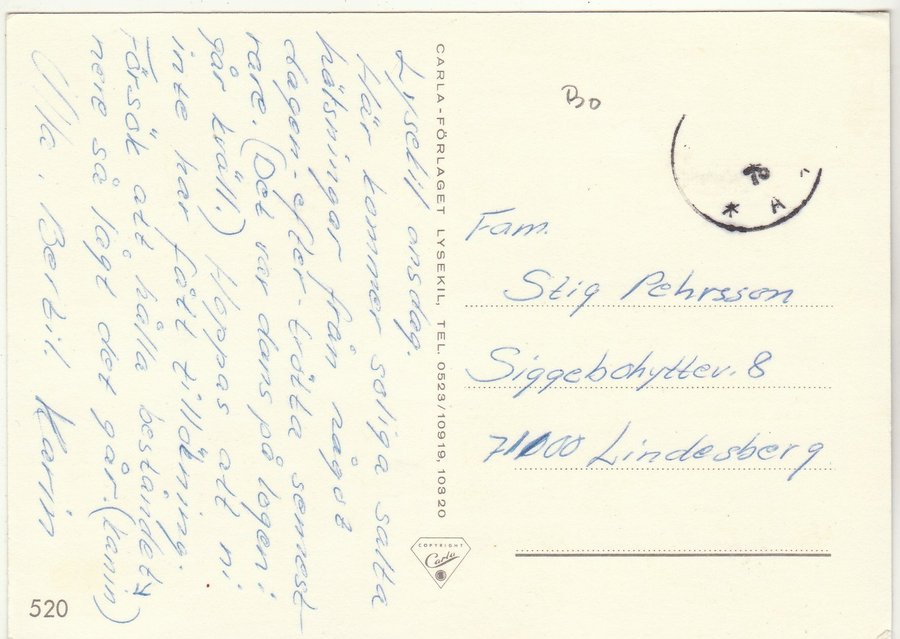 Lysekil onsdag.
Här kommer soliga salta
hälsningar från något
dagen-efter-trötta semest-
rare. (Det var dans på logen i
går kväll.) Hoppas att ni
inte har fått tillökning.
Försök att hålla beståndet
nere så lågt det går. (kanin)
Ulla, Bertil Karin
520
CARLA-FÖRLAGET LYSEKIL, TEL. 0523/10919, 10320
COPYRIGHT
Carla
Bo
Fam.
Stig Pehrsson
Siggebohyttev. 8
71100 Lindesberg